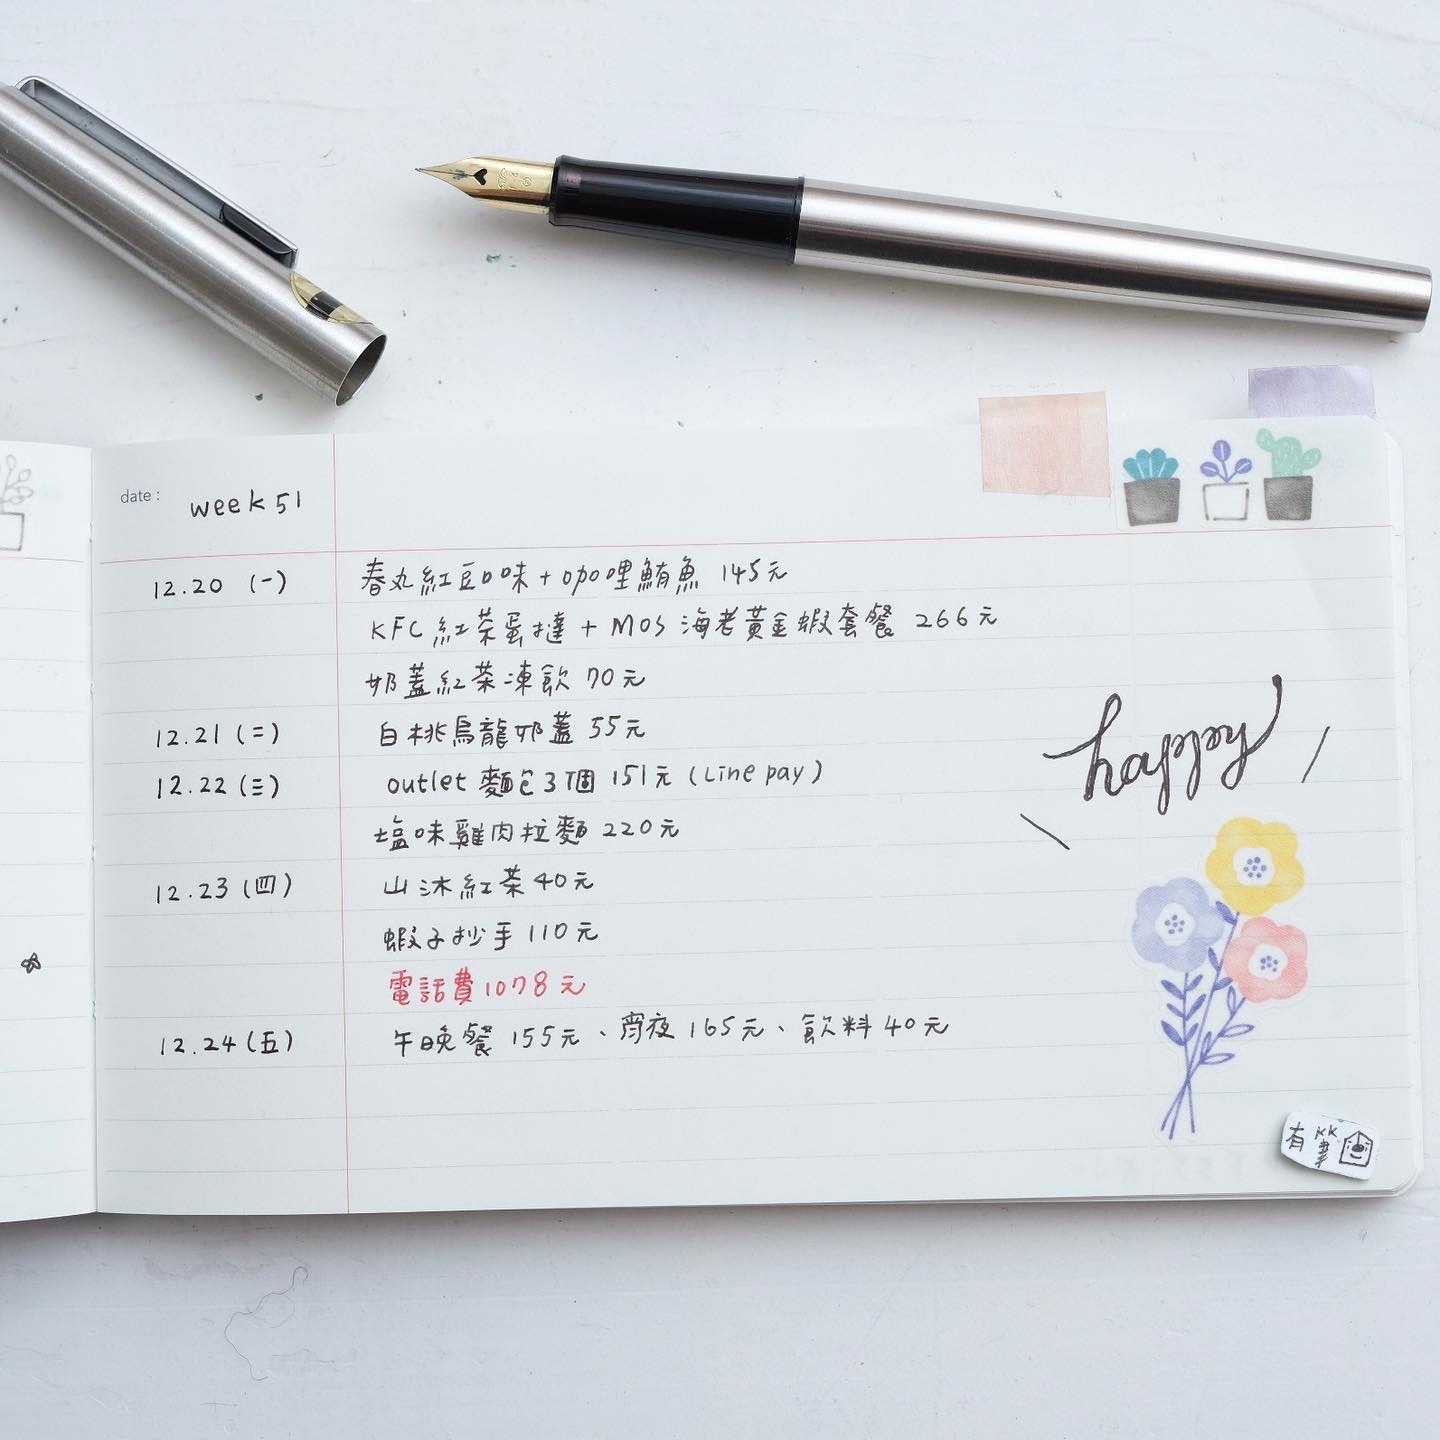 date: week 51
12.20 (一) 春丸紅豆口味+咖哩鮪魚 145元
KFC 紅茶蛋撻 + MOS 海老黃金蝦套餐 266元
奶蓋紅茶凍飲 70元
12.21 (二) 白桃烏龍奶蓋 55元
12.22 (三) outlet 麵包3個 151元 (Line pay)
塩味雞肉拉麵 220元
12.23 (四) 山沐紅茶 40元
蝦子抄手 110元
電話費 1078元
12.24 (五) 午晚餐 155元、宵夜 165元、飲料 40元
happy
有筆